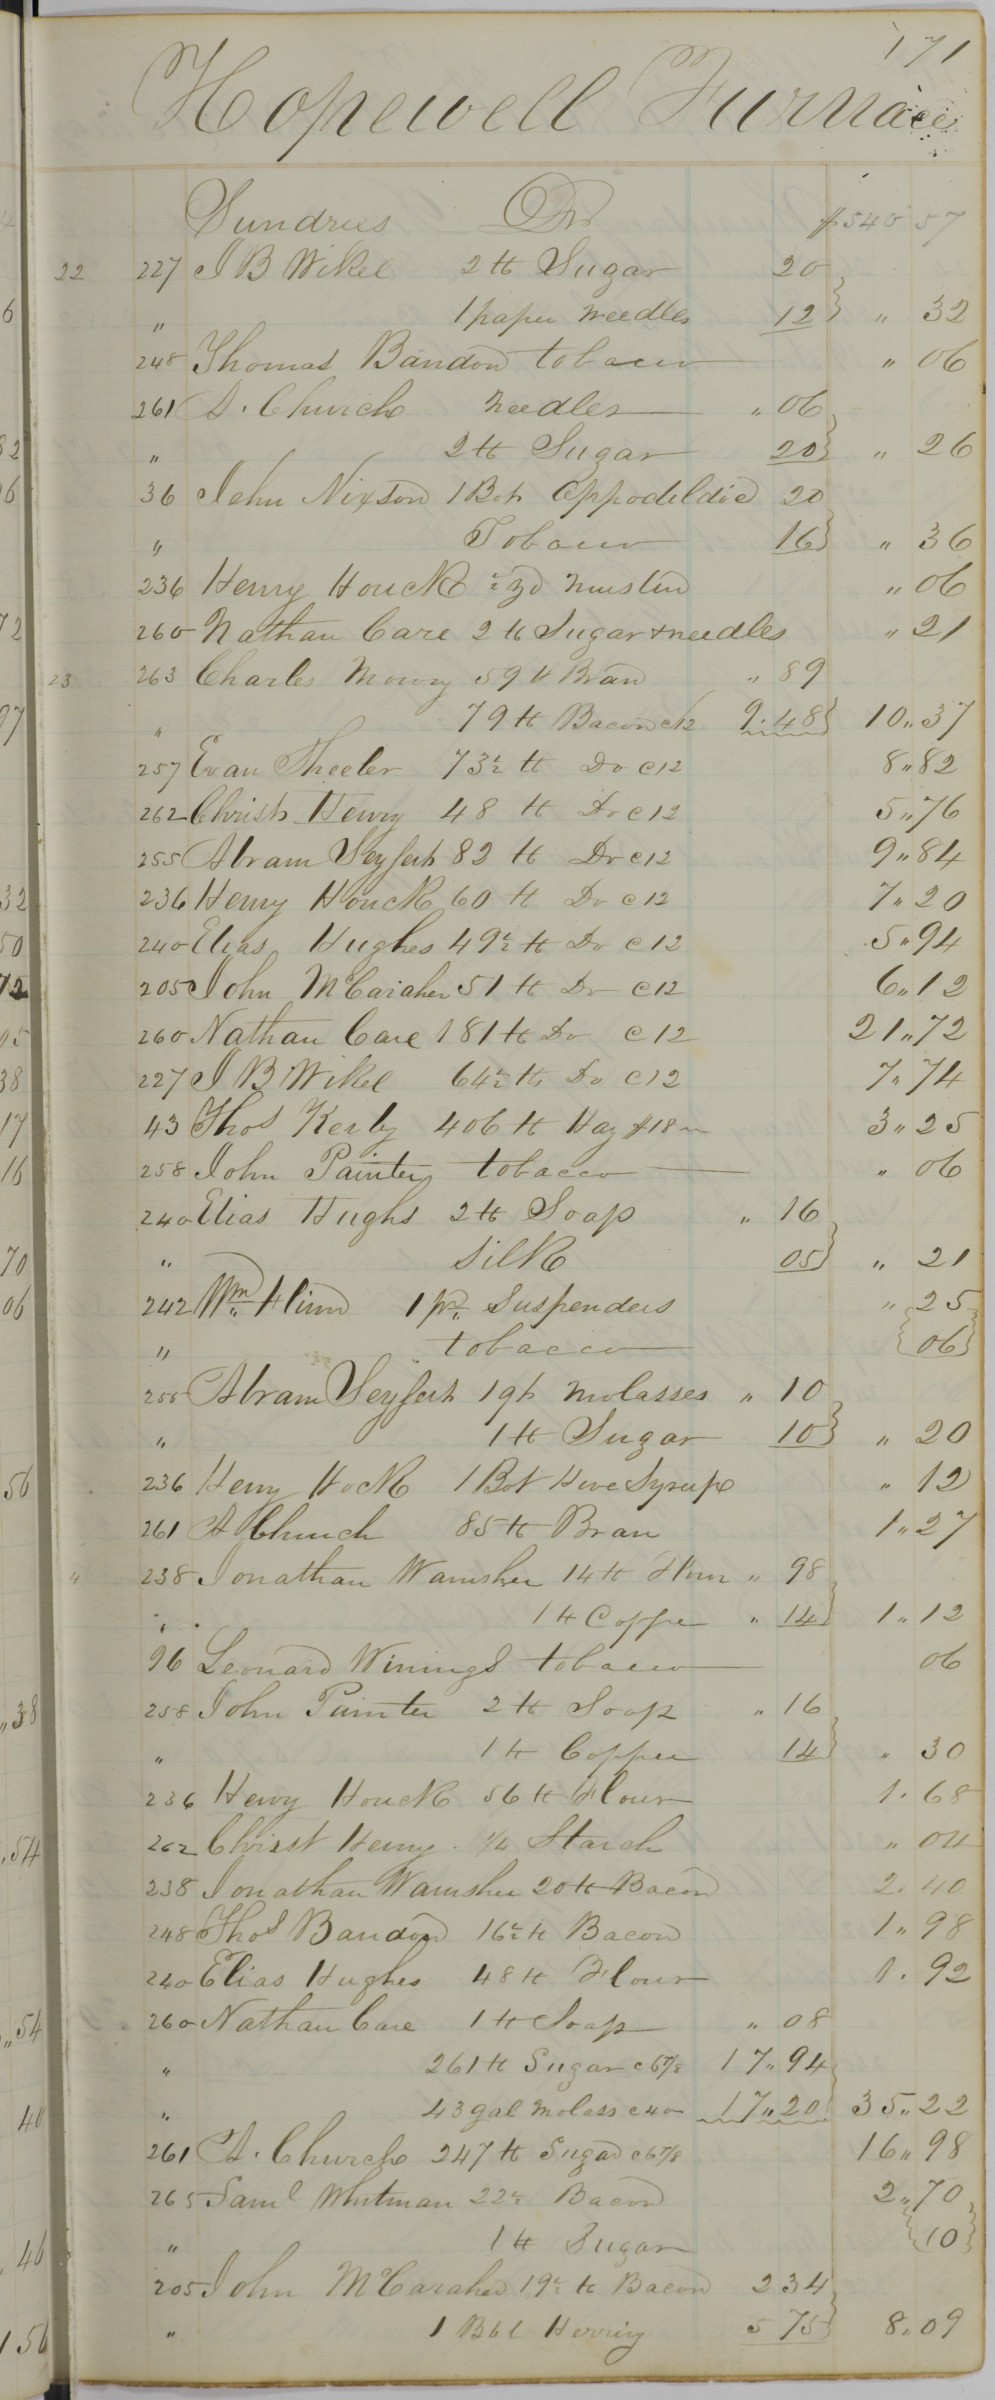 171
Hopewell Furnace
Sundries Dr $540 57
22 227 J B Wikel 2 ℔ Sugar 20
" 1 paper needles 12 " 32
248 Thomas Bandon tobacco " 06
261 A. Church Needles " 06
" 2 ℔ Sugar 20 " 26
36 John Nixson 1 Bot Oppodeldic 20
" Tobacco 16 " 36
236 Henry Houck ½ yd muslin " 06
260 Nathan Care 2 ℔ Sugar & needles " 21
23 263 Charles Mowry 59 ℔ Bran " 89
" 79 ℔ Bacon c12 9.48 10"37
257 Evan Sheeler 73½ ℔ Do c12 8"82
262 Christ Henry 48 ℔ Do c12 5"76
255 Abram Seyfert 82 ℔ Do c12 9"84
236 Henry Houck 60 ℔ Do c12 7"20
240 Elias Hughes 49½ ℔ Do c12 5"94
205 John McCaraher 51 ℔ Do c12 6"12
260 Nathan Care 181 ℔ Do c12 21"72
227 J B Wikel 64½ ℔ Do c12 7"74
43 Thos Kerby 406 ℔ Hay $18 3"25
258 John Painter tobacco " 06
240 Elias Hughs 2 ℔ Soap " 16
" Silk 05 " 21
242 Wm Flinn 1 pr Suspenders " 25
" tobacco 06
255 Abram Seyfert 1 qt molasses " 10
" 1 ℔ Sugar 10 " 20
236 Heny Hock 1 Bot Hive Syrup " 12
261 A Church 85 ℔ Bran 1"27
4 238 Jonathan Wamsher 14 ℔ Flour " 98
" 1 ℔ Coffe " 14 1"12
96 Leonard Winings tobacco 06
258 John Painter 2 ℔ Soap " 16
" 1 ℔ Coffee 14 " 30
236 Henry Houck 56 ℔ Flour 1.68
262 Christ Henry ¼ Starch " 04
238 Jonathan Wamsher 20 ℔ Bacon 2.40
248 Thos Bandon 16½ ℔ Bacon 1"98
240 Elias Hughes 48 ℔ Flour 1.92
260 Nathan Care 1 ℔ Soap " 08
" 261 ℔ Sugar c6⅞ 17"94
" 43 gal molass c40 17"20 35"22
261 A. Church 247 ℔ Sugar c6⅞ 16"98
265 Saml Whitman 22½ Bacon 2"70
" 1 ℔ Sugar 10
205 John McCaraher 19½ ℔ Bacon 2 34
" 1 Bbl Herring 5 75 8"09